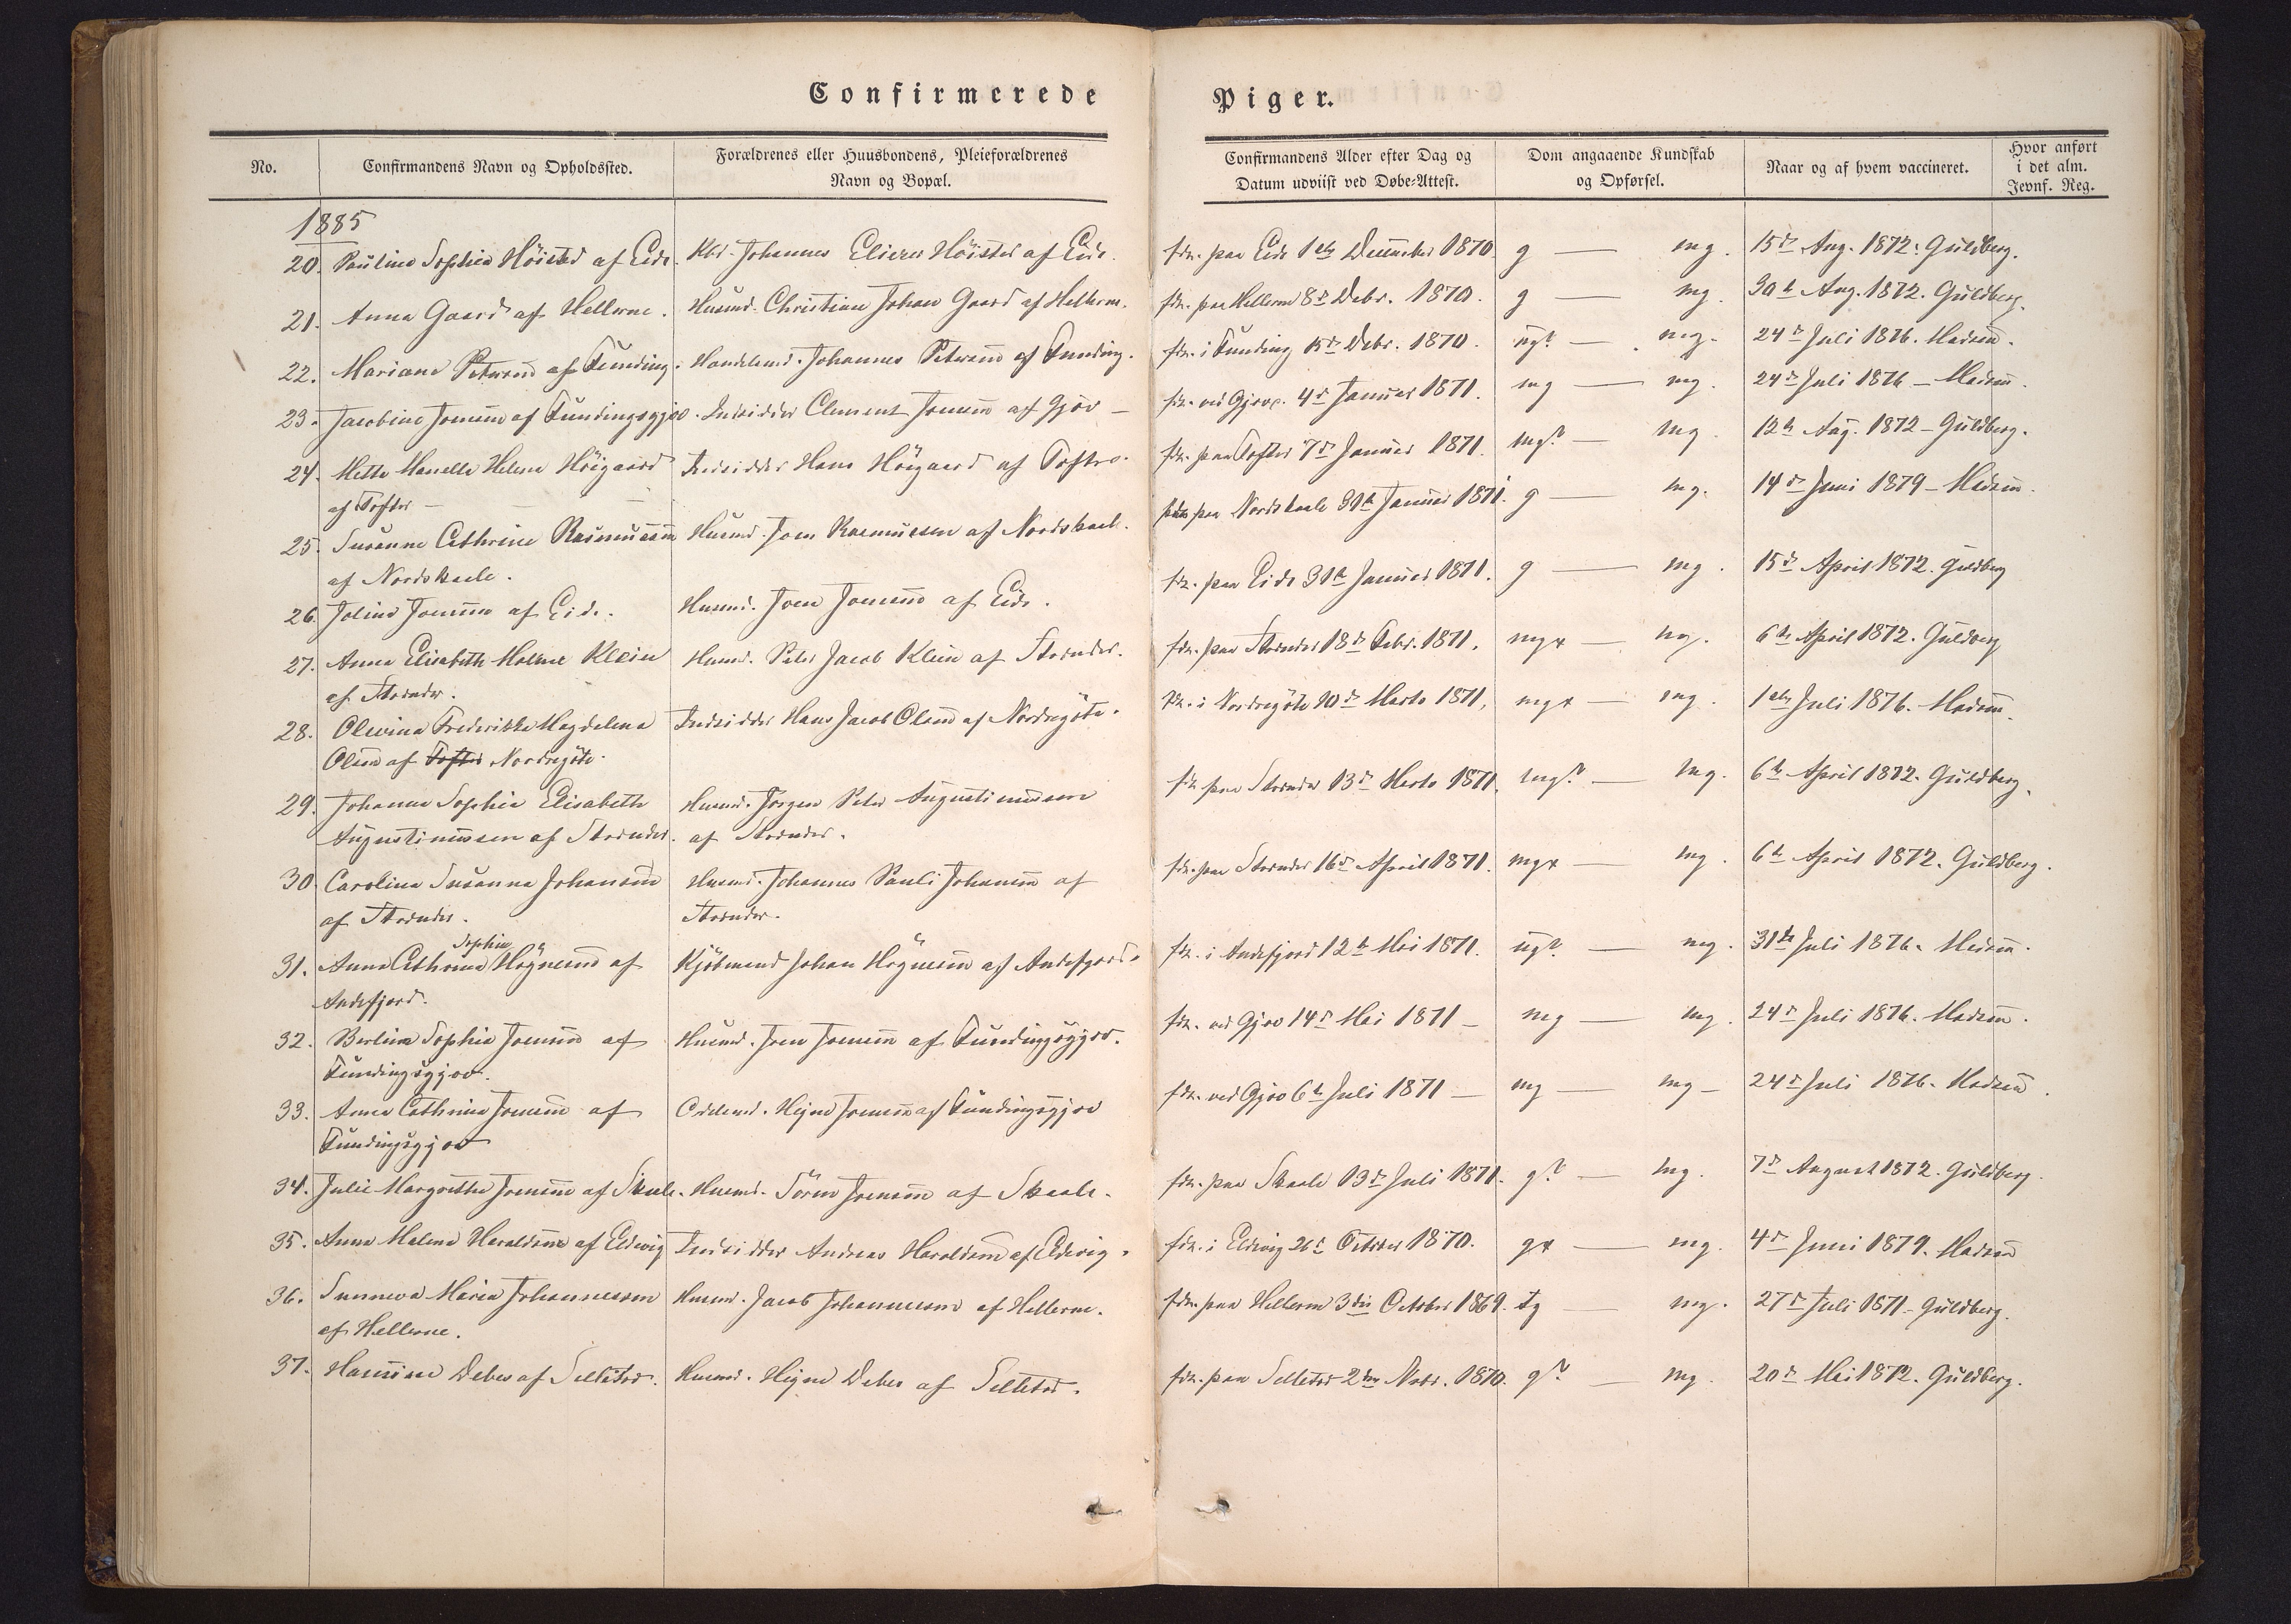 Confirmerede
Piger.
No.
Confirmandens Navn og Opholdssted.
Forældrenes eller Huusbondens, Pleieforældrenes
Navn og Bopæl.
Confirmandens Alder efter Dag og
Datum udviist ved Døbe-Attest.
Dom angaaende Kundskab
og Opførsel.
Naar og af hvem vaccineret.
Hvor anført
i det alm.
Jevnf. Reg.
1885
20. Pauline Sophie Höisted af Eide. Johannes Höisted af Eide. fdr. paa Eide 1ste December 1870. g — mg. 15de Aug. 1872. Guldberg.
21. Anna Gaard af Hellerne. Husmd. Christian Johan Gaard af Hellerne. fdr. paa Hellerne 8de Debr. 1870. g — mg. 30te Aug. 1872. Guldberg.
22. Mariane Petersen af Funding. Handelsmd. Johannes Petersen af Funding. fdr. i Funding 15de Debr. 1870. ug? — mg. 24de Juli 1876. Madsen.
23. Jacobine Joensen af Fundingsgjov. Indsidder Clement Joensen af Gjov — fdr. ved Gjov. 4de Januar 1871. mg — mg. 24de Juli 1876 — Madsen.
24. Mette Helene Höigaard Indsidder Hans Höigaard af Tofter. fdr. paa Tofter 7de Januar 1871. mg? — mg. 12te Aug. 1872 — Guldberg.
af Tofter —
25. Susanne Cathrine Rasmussen Husmd. Joen Rasmussen af Nordskaale. fdr. paa Nordskaale 31te Januar 1871. g — mg. 14de Juni 1879 — Madsen.
af Nordskaale.
26. Joensen af Eide. Husmd. Joen Joensen af Eide. fdr. paa Eide 31te Januar 1871. g — mg. 15de April 1872. Guldberg
27. Anna Elisabeth Malene Klein Husmd. Peter Jacob Klein af Strender. fdr. paa Strender 18de Febr. 1871. mgx — mg. 6te April 1872. Guldberg
af Strender.
28. Olevina Frederikke Magdelena Indsidder Hans Jacob Olsen af Nordregöte. fdr. i Nordregöte 10de Marts 1871. mgx — mg. 1ste Juli 1876. Madsen.
Olsen af Tofter Nordregöte.
29. Johanne Sophie Elisabeth Husmd. Jørgen Peter Augustinussen fdr. paa Strender 13de Marts 1871. mg? — mg. 6te April 1872. Guldberg.
Augustinussen af Strender. af Strender.
30. Caroline Susanne Johansen Husmd. Johannes Pauli Johansen af fdr. paa Strender 16de April 1871. mgx — mg. 6te April 1872. Guldberg.
af Strender. Strender.
Sophie
31. Anna Cathrine Högnesen af Kjöbmand Johan Högnesen af Andefjord. fdr. i Andefjord 12te Mai 1871. ug? — mg. 31te Juli 1876. Madsen.
Andefjord.
32. Berline Sophie Joensen af Husmd. Joen Joensen af Fundingsgjov. fdr. ved Gjov 14de Mai 1871 — mg — mg. 24de Juli 1876. Madsen.
Fundingsgjov.
33. Anna Cathrine Joensen af Odelsmd. Joensen af Fundingsgjov fdr. ved Gjov 6te Juli 1871 — mg — mg — 24de Juli 1876. Madsen.
Fundingsgjov
34. Julie Margrethe Joensen af Skaale. Husmd. Sören Joensen af Skaale. fdr. paa Skaale 13de Juli 1871. g? — mg. 7de August 1872. Guldberg.
35. Anna Malene Haraldsen af Eldevig Indsidder Andreas Haraldsen af Eldevig. fdr. i Eldevig 26de October 1870. gx — mg. 4de Juni 1879. Madsen
36. Sunneva Maria Johannessen Husmd. Jacob Johannessen af Hellerne. fdr. paa Hellerne 3die October 1869. tg — mg. 27de Juli 1871 — Guldberg.
af Hellerne.
37. Debes af Selletræ. Husmd. Debes af Selletræ. fdr. paa Selletræ 2den Novbr. 1870. g? — mg. 20de Mai 1872. Guldberg.